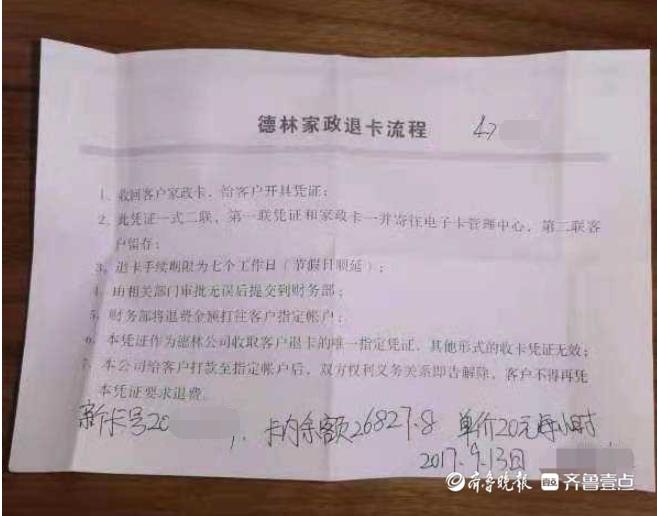 德林家政退卡流程
1、收回客户家政卡,给客户开具凭证;
2、此凭证一式二联,第一联凭证和家政卡一并寄往电子卡管理中心,第二联客
户留存;
3、退卡手续期限为七个工作日(节假日顺延);
4、由相关部门审批无误后提交到财务部;
5、财务部将退费金额打往客户指定帐户;
6、本凭证作为德林公司收取客户退卡的唯一指定凭证,其他形式的收卡凭证无效;
7、本公司给客户打款至指定帐户后,双方权利义务关系即告解除,客户不得再凭
本凭证要求退费。
新卡号20 卡内余额26827.8 单价20元每小时
2017.9.13日
齐鲁晚报 齐鲁壹点